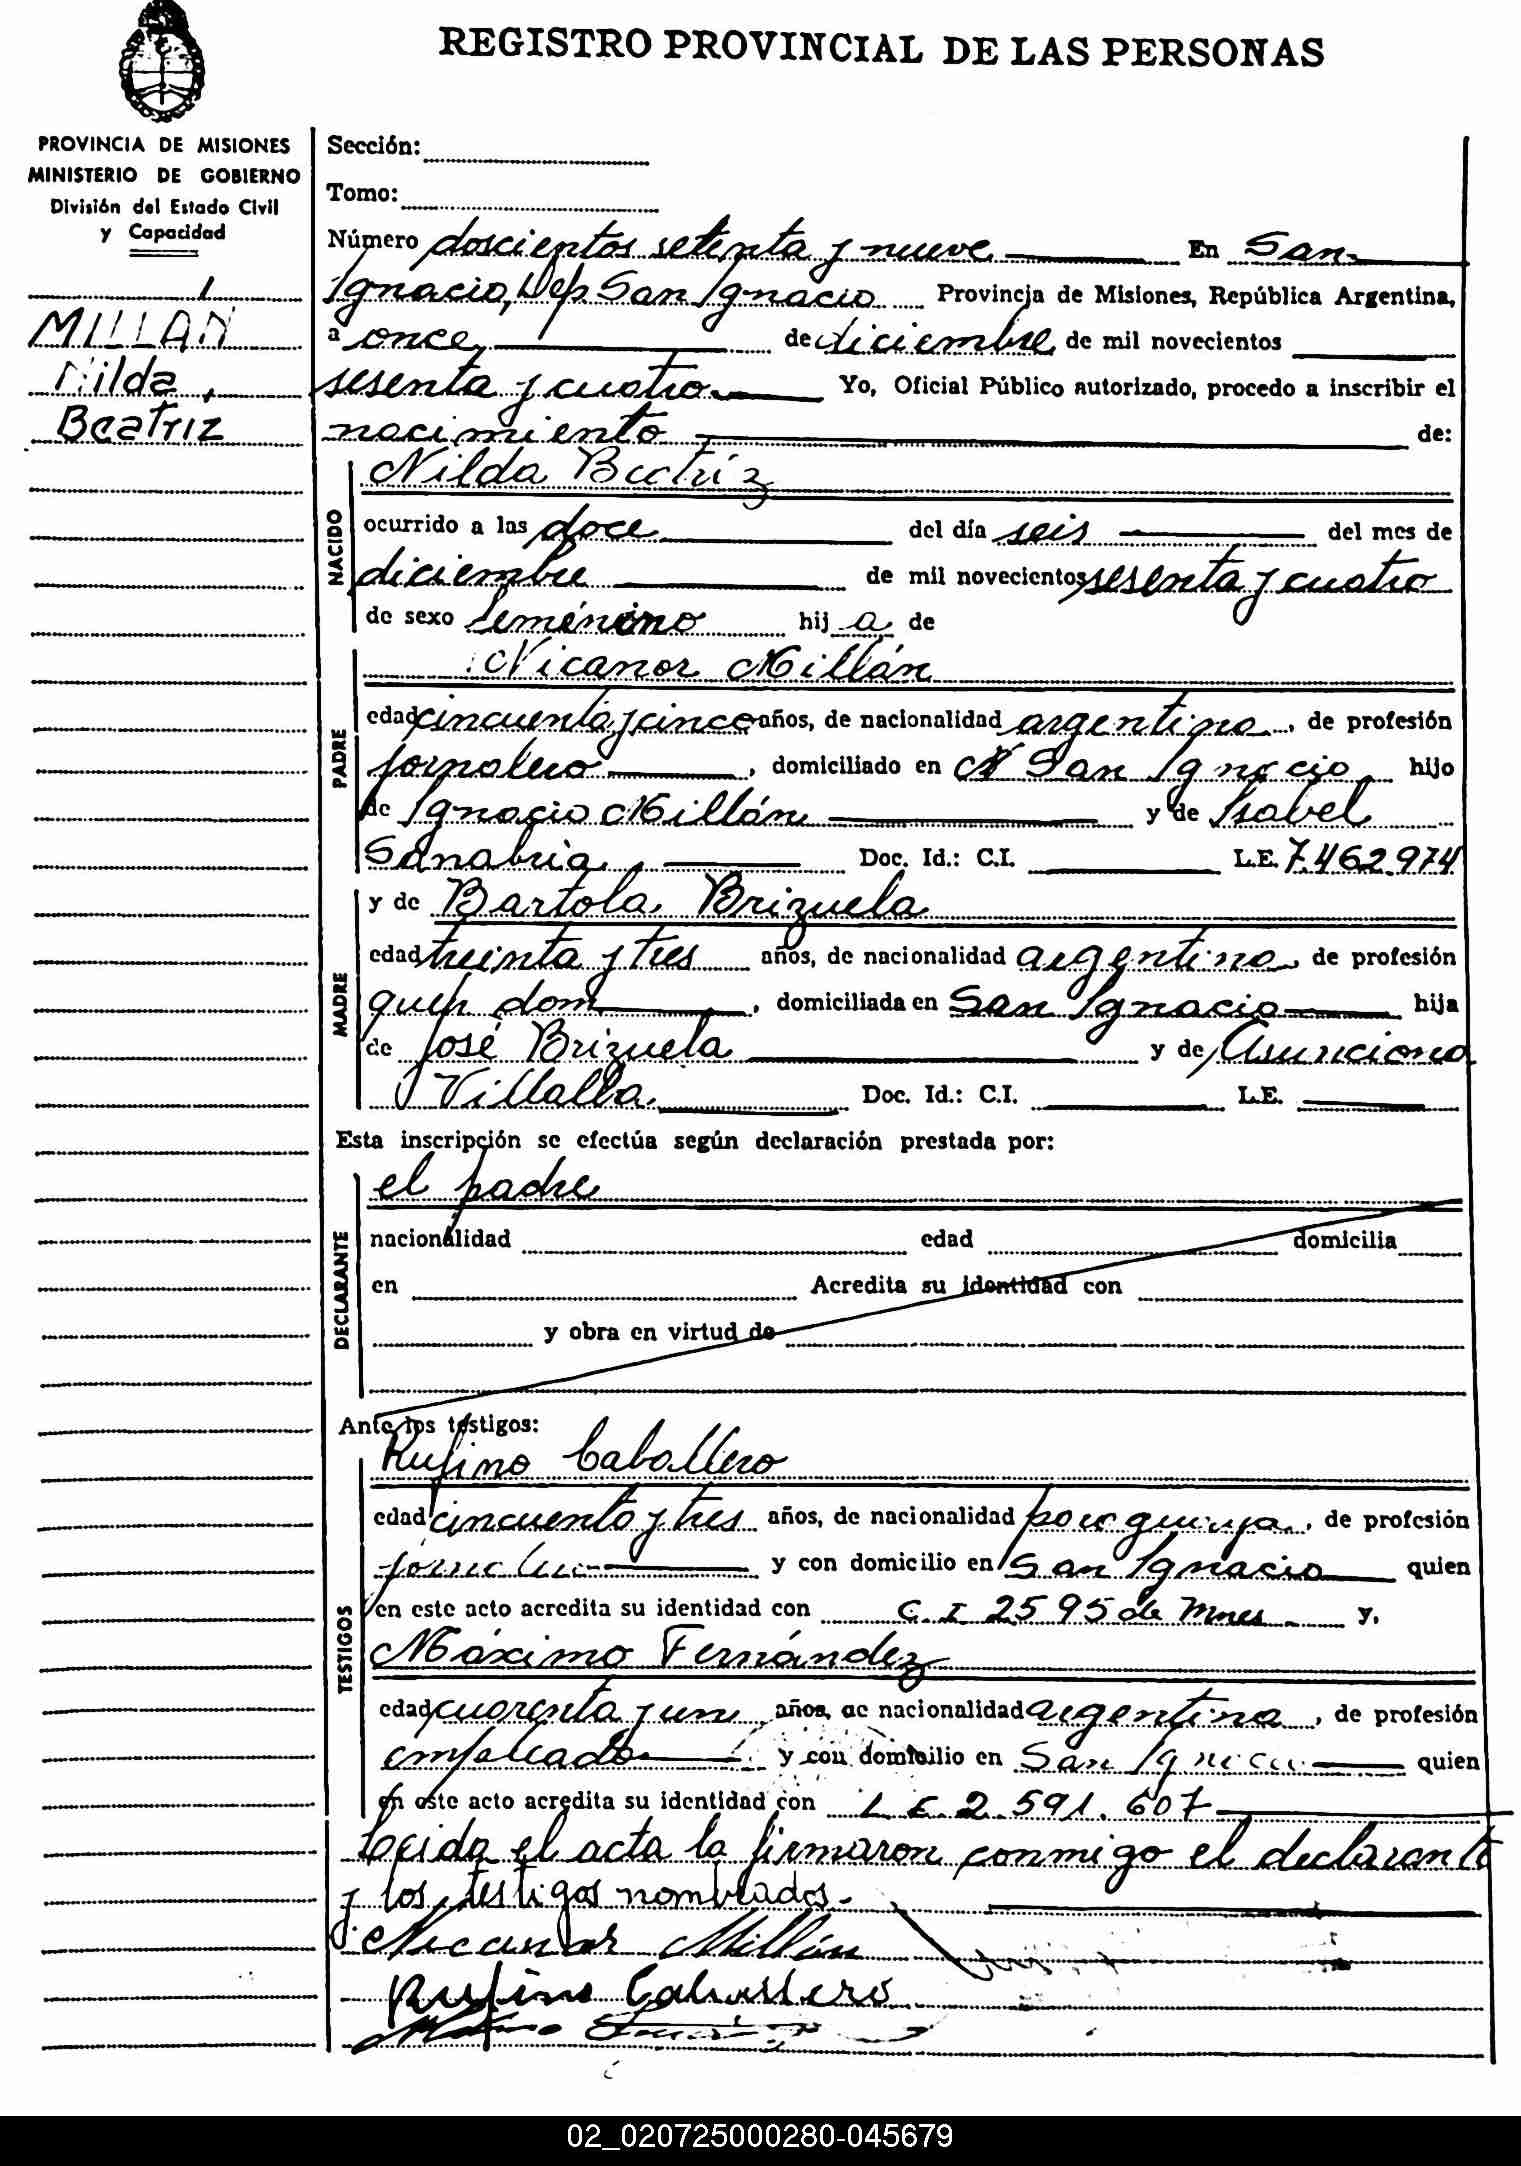 REGISTRO PROVINCIAL DE LAS PERSONAS
PROVINCIA DE MISIONES
MINISTERIO DE GOBIERNO
División del Estado Civil
y Capacidad
MILLAN
Nilda
Beatriz
Sección:
Tomo:
Número doscientos setenta y nueve En San
Ignacio, Dep San Ignacio Provincia de Misiones, República Argentina,
a once de diciembre de mil novecientos
sesenta y cuatro Yo, Oficial Público autorizado, procedo a inscribir el
nacimiento de:
NACIDO
Nilda Beatriz
ocurrido a las doce del día seis del mes de
diciembre de mil novecientos sesenta y cuatro
de sexo femenino hij a de
PADRE
Nicanor Millán
edad cincuenta y cinco años, de nacionalidad argentina, de profesión
jornalero, domiciliado en San Ignacio hijo
de Ignacio Millán y de Isabel
Sanabria Doc. Id.: C.I. L.E. 7.462.974
MADRE
y de Bartola Brizuela
edad treinta y tres años, de nacionalidad argentina, de profesión
queh dom, domiciliada en San Ignacio hija
de José Brizuela y de Asunciona
Villalba Doc. Id.: C.I. L.E.
Esta inscripción se efectúa según declaración prestada por:
DECLARANTE
el padre
nacionalidad edad domicilia
en Acredita su identidad con
y obra en virtud de
Ante los testigos:
TESTIGOS
Rufino Caballero
edad cincuenta y tres años, de nacionalidad paraguaya, de profesión
jornalero y con domicilio en San Ignacio quien
en este acto acredita su identidad con C. I 2595 de Mnes y,
Máximo Fernández
edad cuarenta y un años, de nacionalidad argentina, de profesión
empleado y con domicilio en San Ignacio quien
en este acto acredita su identidad con L E 2.591.607
Leida el acta la firmaron conmigo el declarante
y los testigos nombrados.
Nicanor Millán
Rufino Caballero
02_020725000280-045679